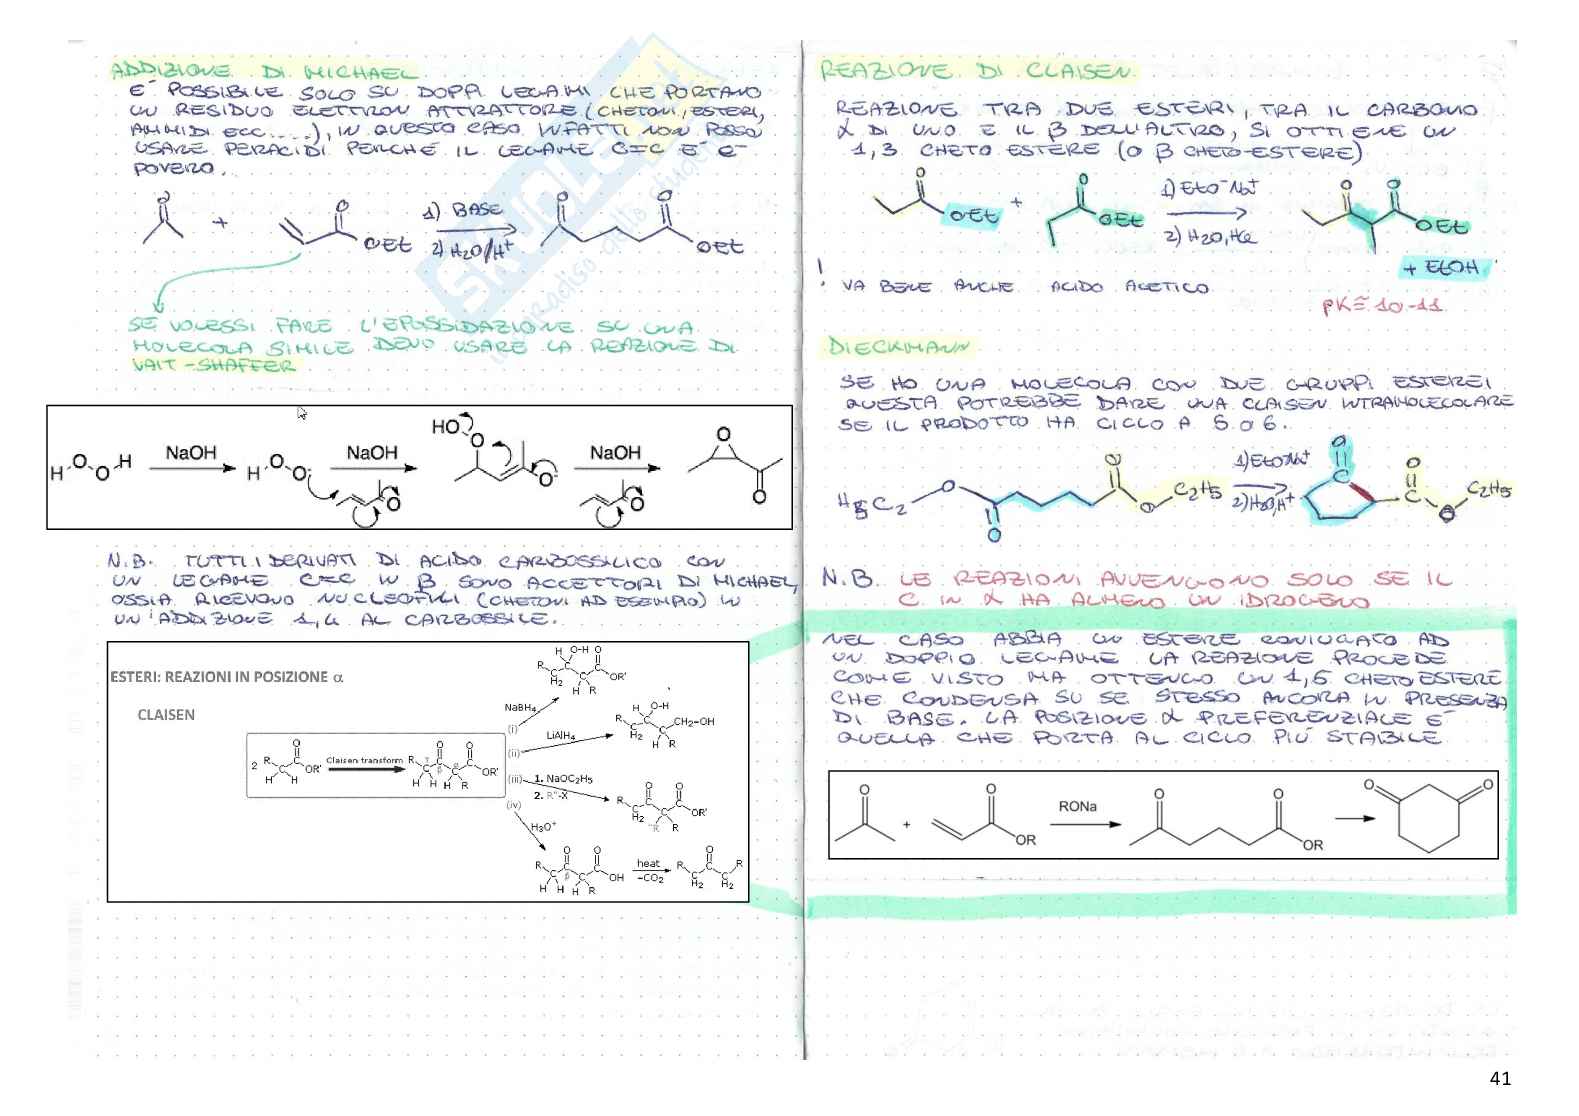 ADDIZIONE DI MICHAEL
E' POSSIBILE SOLO SU DOPPI LEGAMI CHE PORTANO
UN RESIDUO ELETTRON ATTRATTORE (CHETONI, ESTERI,
AMMIDI ECC....), IN QUESTO CASO INFATTI NON POSSO
USARE PERACIDI PERCHÉ IL LEGAME C=C E' e-
POVERO.
O + O OEt 1) BASE O O OEt
2) H2O/H+
SE VOLESSI FARE L'EPOSSIDAZIONE SU UNA
MOLECOLA SIMILE DEVO USARE LA REAZIONE DI
VAIT-SHAFFER
H O O H NaOH H O O NaOH HO O O NaOH O O
O O
N.B. TUTTI I DERIVATI DI ACIDO CARBOSSILICO CON
UN LEGAME C=C IN β SONO ACCETTORI DI MICHAEL,
OSSIA RICEVONO NUCLEOFILI (CHETONI AD ESEMPIO) IN
UN'ADDIZIONE 1,4 AL CARBOSSILE.
ESTERI: REAZIONI IN POSIZIONE α
CLAISEN
2 R C OR' H H O
Claisen transform
R C C C OR' H H H R O O γ β α
NaBH4
(i)
R C H2 H O-H C C O OR' H R
LiAlH4
(ii)
R C H2 H O-H C C CH2-OH H R
(iii) 1. NaOC2H5
2. R"-X
R C H2 O C C O OR' "R R
(iv)
H3O+
R C O C O OH H H H R β
heat
-CO2
R C H2 O C C H2 R
REAZIONE DI CLAISEN
REAZIONE TRA DUE ESTERI, TRA IL CARBONIO
α DI UNO E IL β DELL'ALTRO, SI OTTIENE UN
1,3 CHETO ESTERE (O β CHETO-ESTERE)
O OEt + O OEt 1) EtO-Na+ O O OEt
2) H2O, HCl
+ EtOH
! VA BENE ANCHE ACIDO ACETICO
pK≅10-11
DIECKMANN
SE HO UNA MOLECOLA CON DUE GRUPPI ESTEREI
QUESTA POTREBBE DARE UNA CLAISEN INTRAMOLECOLARE
SE IL PRODOTTO HA CICLO A 5 O 6.
H5C2 O O O O C2H5 1) EtONa+ O C O C O C2H5
2) H2O, H+
N.B. LE REAZIONI AVVENGONO SOLO SE IL
C IN α HA ALMENO UN IDROGENO
NEL CASO ABBIA UN ESTERE CONIUGATO AD
UN DOPPIO LEGAME LA REAZIONE PROCEDE
COME VISTO MA OTTENGO UN 1,5 CHETO ESTERE
CHE CONDENSA SU SE STESSO ANCORA IN PRESENZA
DI BASE. LA POSIZIONE α PREFERENZIALE E'
QUELLA CHE PORTA AL CICLO PIÙ STABILE
O + O OR RONa O O OR O O
41